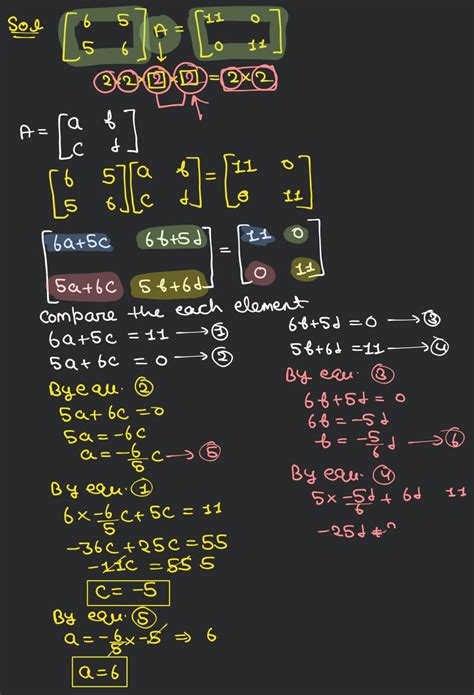 Sol [6 5 5 6] A = [11 0 0 11]
2×2 × 2×2 = 2×2
A = [a b c d]
[6 5 5 6][a b c d] = [11 0 0 11]
[6a+5c 6b+5d 5a+6c 5b+6d] = [11 0 0 11]
Compare the each element
6a+5c = 11 → ①
5a+6c = 0 → ②
By equ. ②
5a+6c=0
5a=-6c
a=-6/5 c → ⑤
By equ. ①
6×-6/5 c+5c = 11
-36c+25c=55
-11c=55 5
c = -5
By equ. ⑤
a=-6/5×-5 ⇒ 6
a=6
6b+5d =0 → ③
5b+6d =11 → ④
By equ. ③
6b+5d = 0
6b=-5d
b=-5/6 d → ⑥
By equ. ④
5×-5d/6 + 6d 11
-25d+